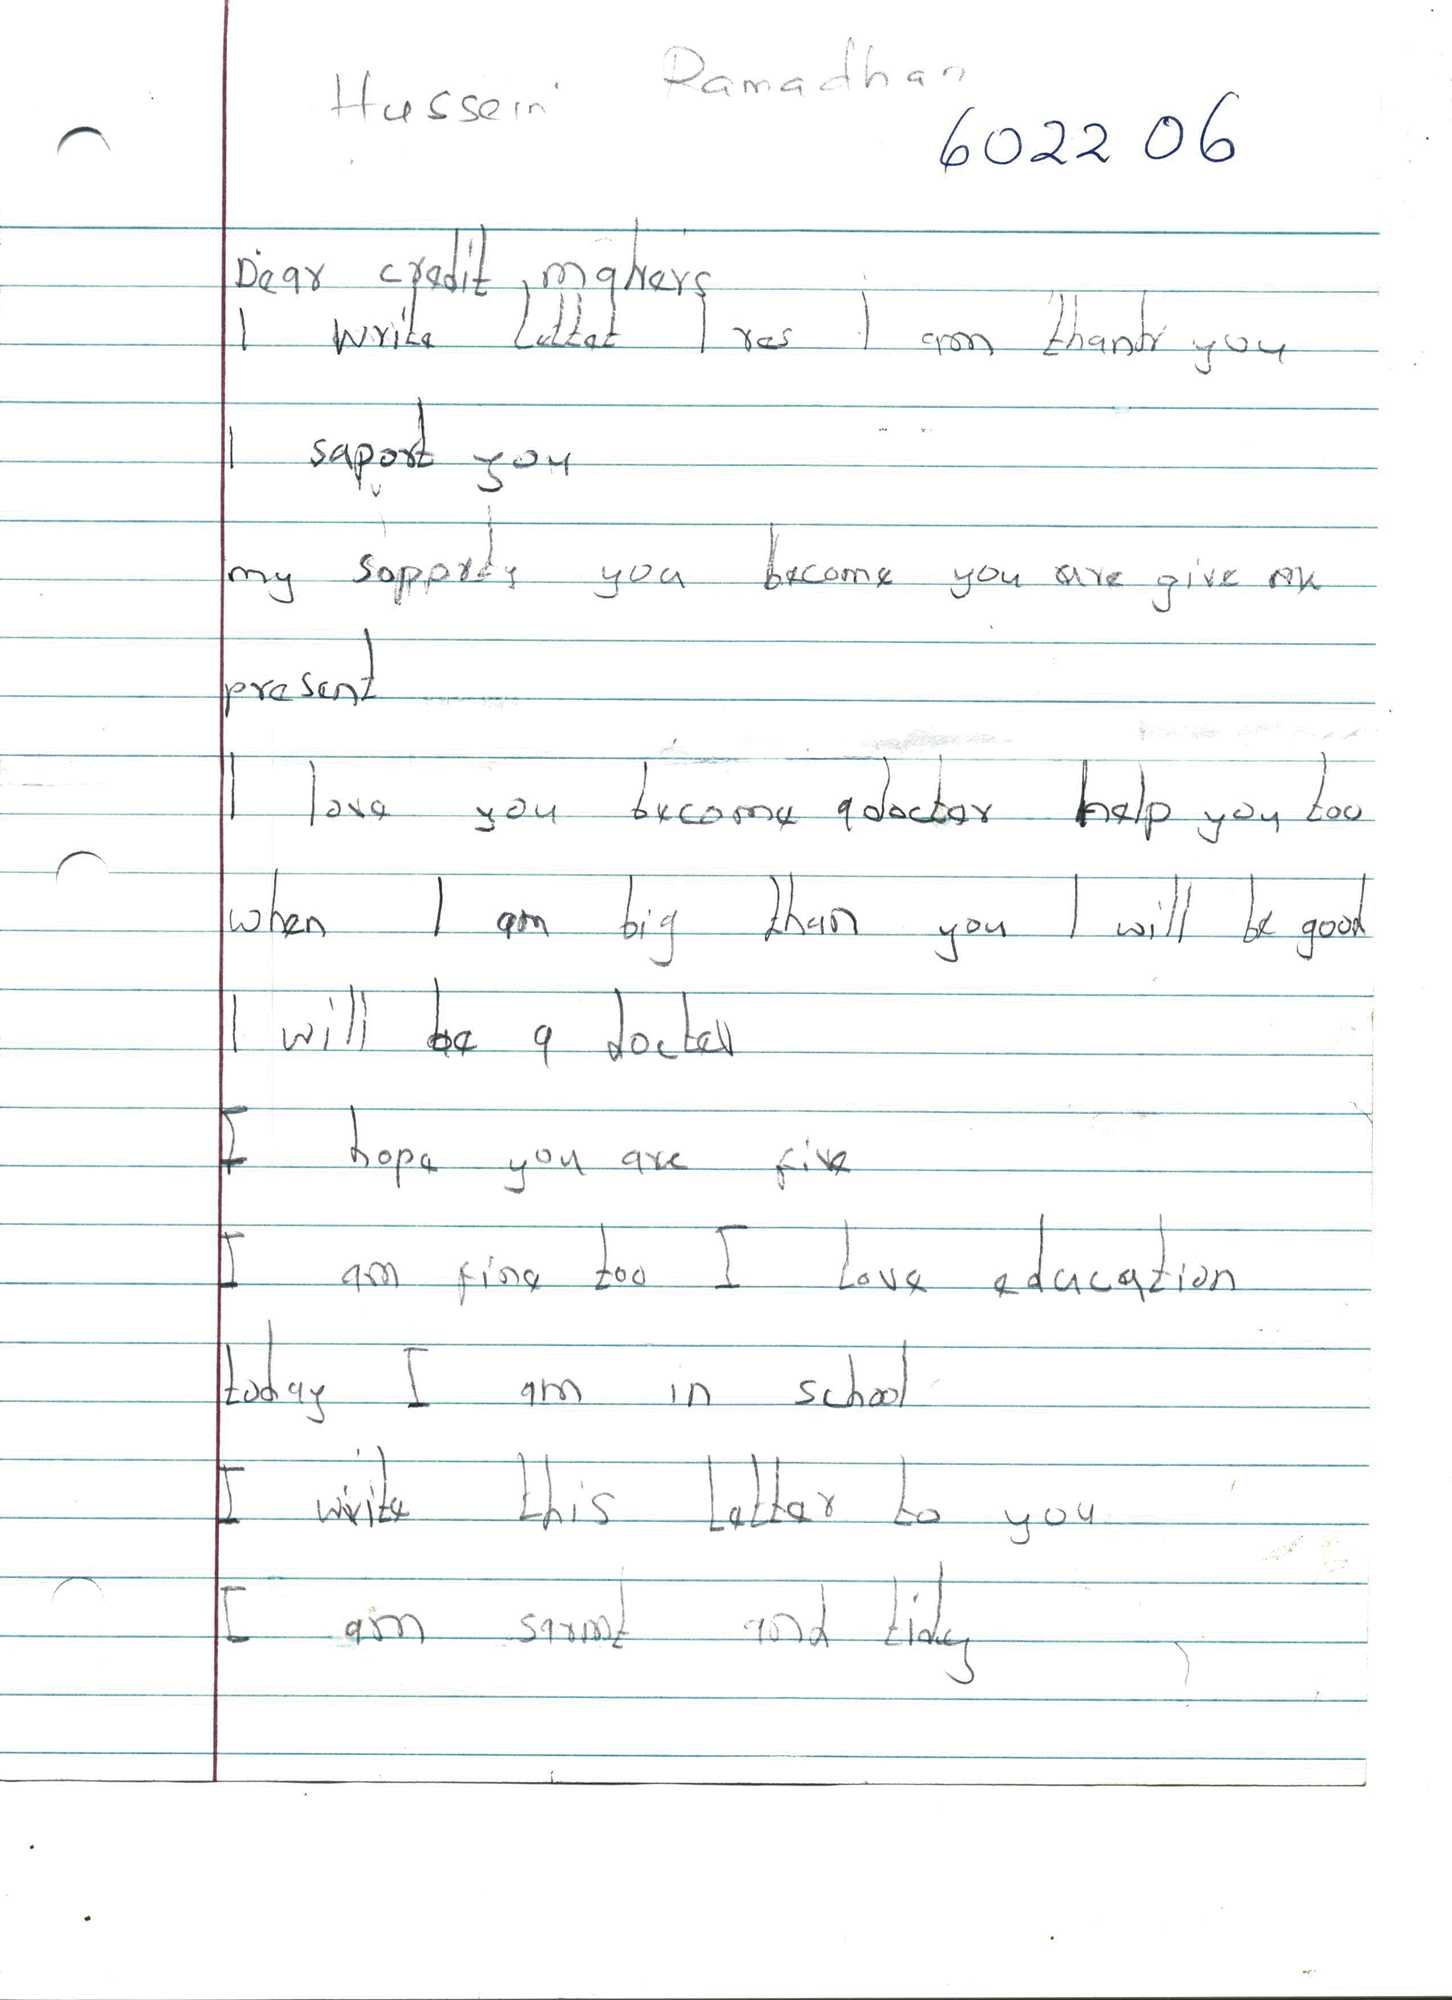 Hussein Ramadhan
602206
Dear credit makers
I write lettet I res I am thank you
I saport you
my sopports you become you are give me
present
I love you become a docter help you too
when I am big than you I will be good
I will be a docter
I hope you are five
I am fine too I love education
today I am in school
I write this letter to you
I am sarmt and tidy